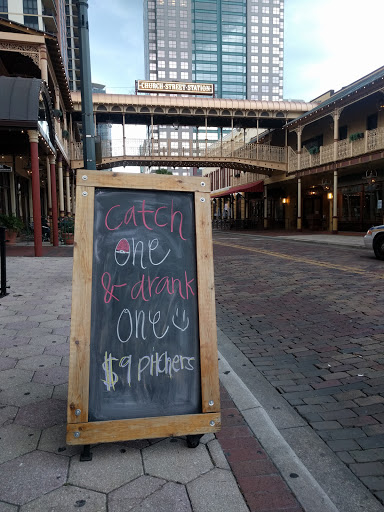 CHURCH STREET STATION
catch
One
& drank
One
$9 pitchers